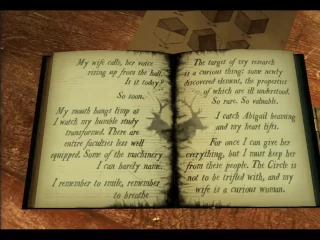 My wife calls, her voice
rising up from the hall.
Is it today?
So soon.
My mouth hangs limp as
I watch my humble study
transformed. There are
entire faculties less well
equipped. Some of the machinery
I can barely name.
I remember to smile, remember
to breathe
The target of my research
is a curious thing: some newly
discovered element, the properties
of which are ill understood.
So rare. So valuable.
I catch Abigail beaming
and my heart lifts.
For once I can give her
everything, but I must keep her
from these people. The Circle is
not to be trifled with, and my
wife is a curious woman.